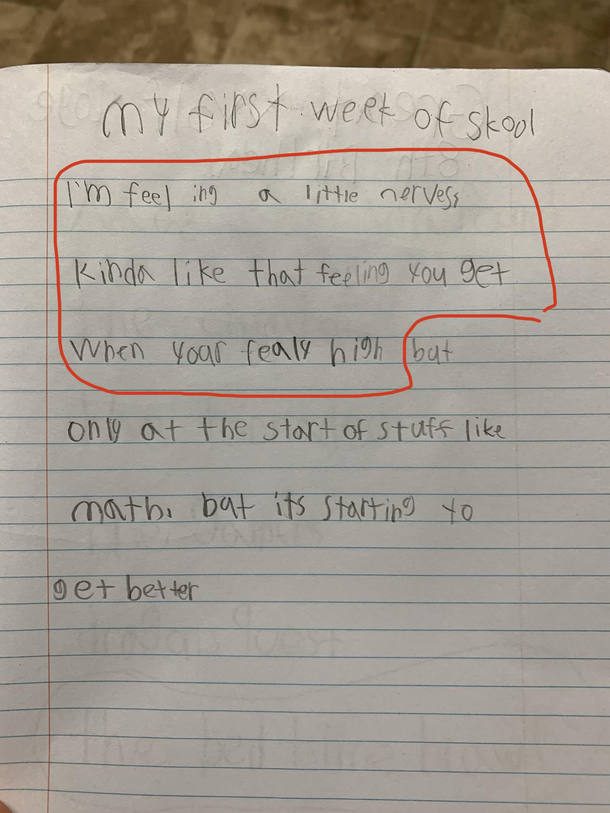 my first week of skool
I'm feel ing a little nervess
Kinda like that feeling you get
When your fealy high but
only at the start of stuff like
math. but its starting to
get better